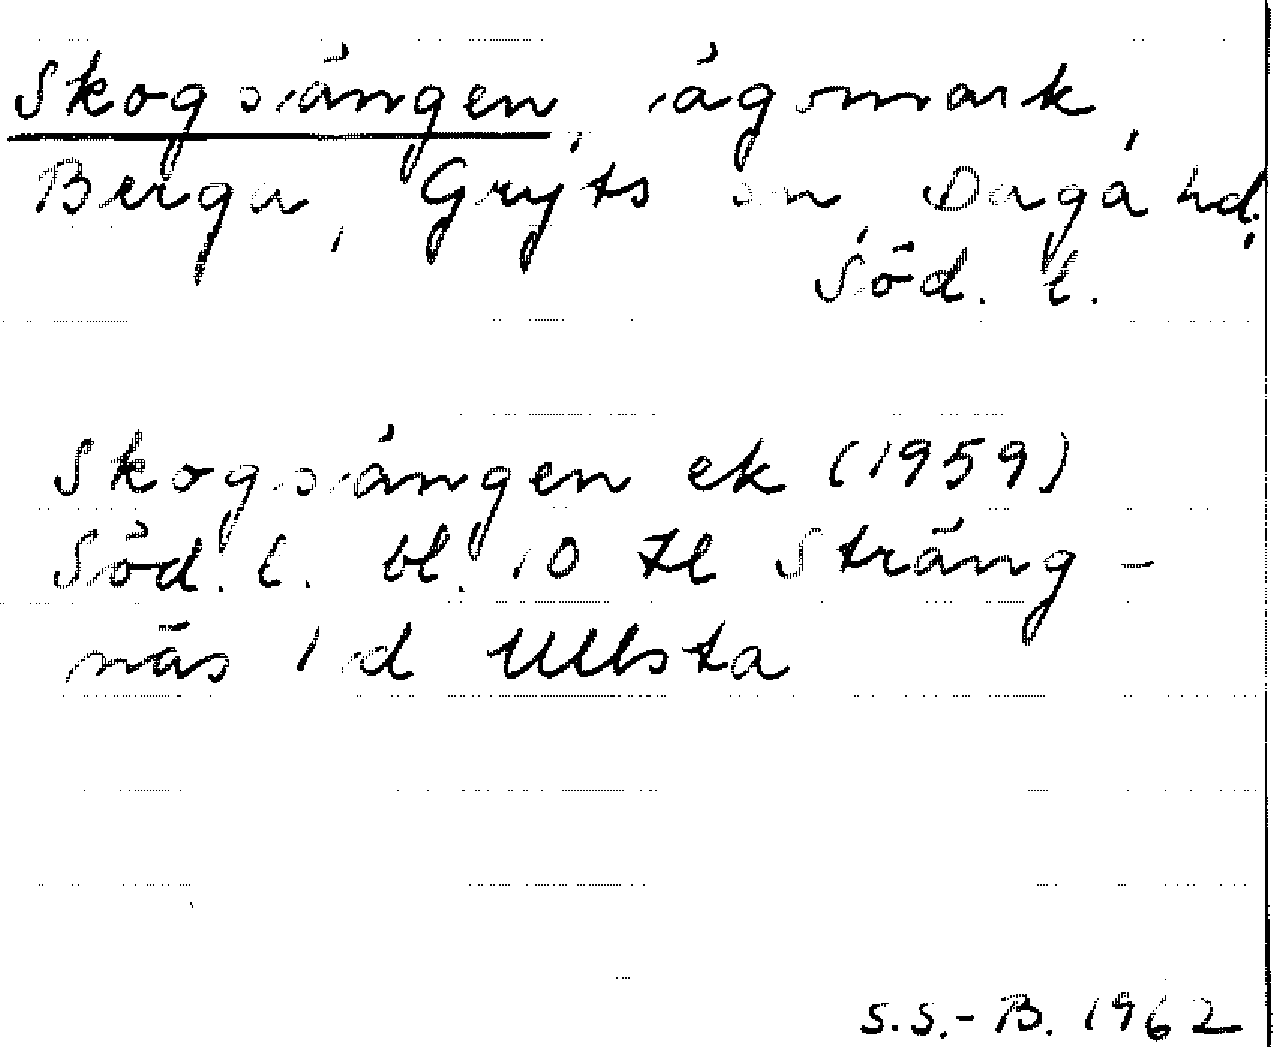 Skogsängen, ägomark,
Berga, Gryts sn, Daga hd,
Söd. l.
Skogsängen ek (1959)
Söd. l. bl. 10 tl Sträng-
näs 1 d Ullsta
S.S.-B. 1962